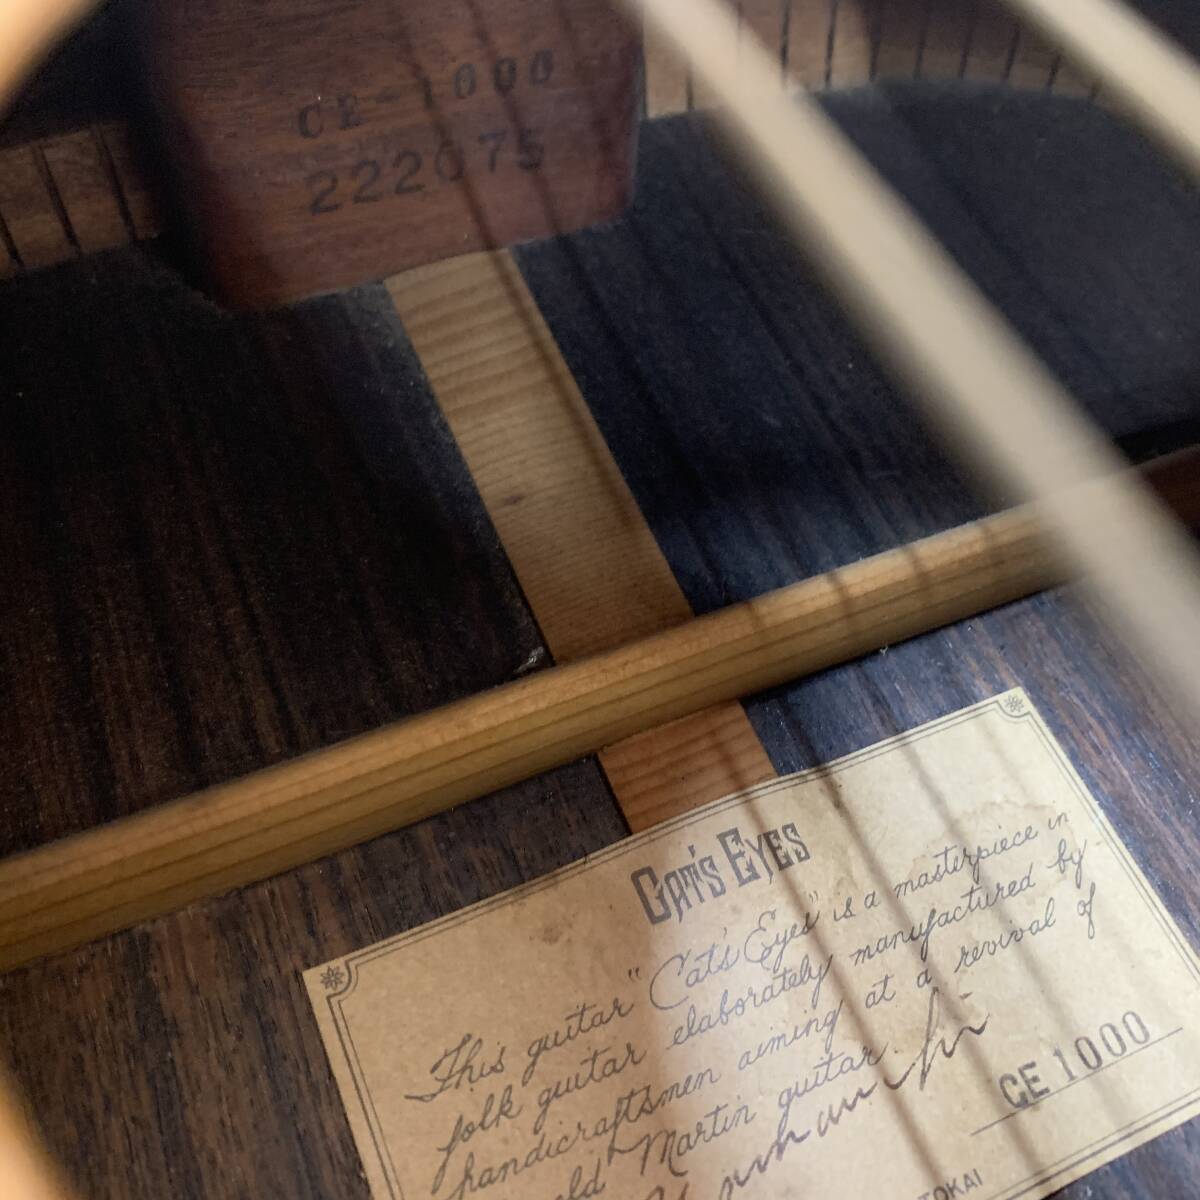 CE-1000
222075
CAT'S EYES
This guitar "Cat's Eyes" is a masterpiece in
folk guitar elaborately manufactured by
handicraftsmen aiming at a revival of
old Martin guitar.
CE 1000
TOKAI